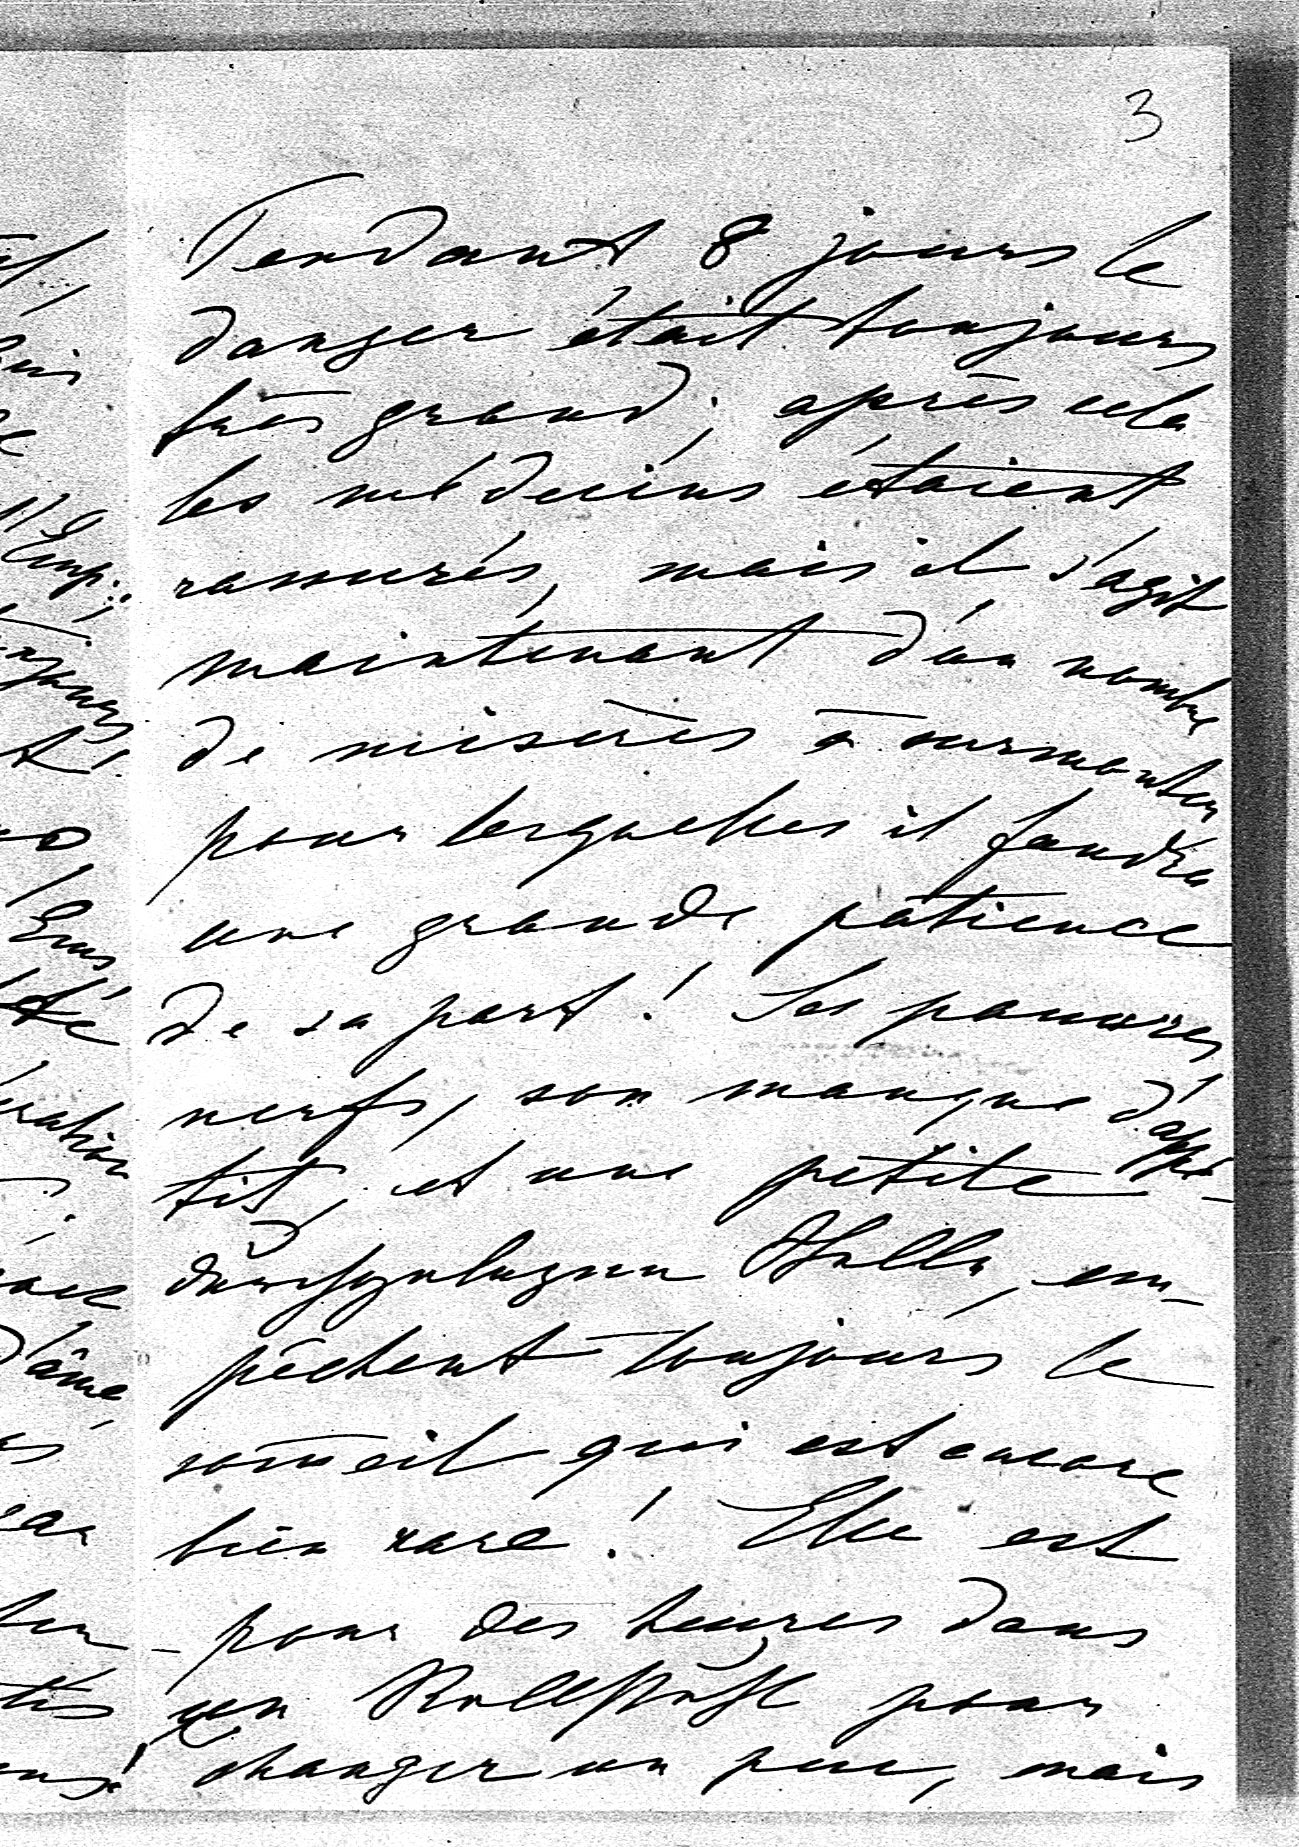 3
Pendant 8 jours le
danger était toujours
très grand; après cela
les médecins étaient
rassurés, mais il s'agit
maintenant d'un nombre
de misères à surmonter
pour lesquelles il faudra
une grande patience
de sa part! Ses pauvres
nerfs, son manque d'appé-
tit, et une petite
durchgelegene Stelle, em-
pêchent toujours le
someil qui est encore
bien rare! Elle est
pour des heures dans
un Rollstuhl pour
changer un peu, mais